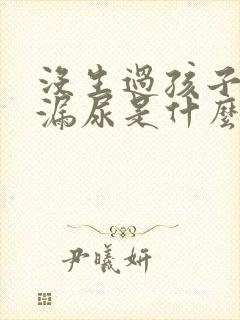 沒生過孩子
漏尿是什麼
尹曦妍